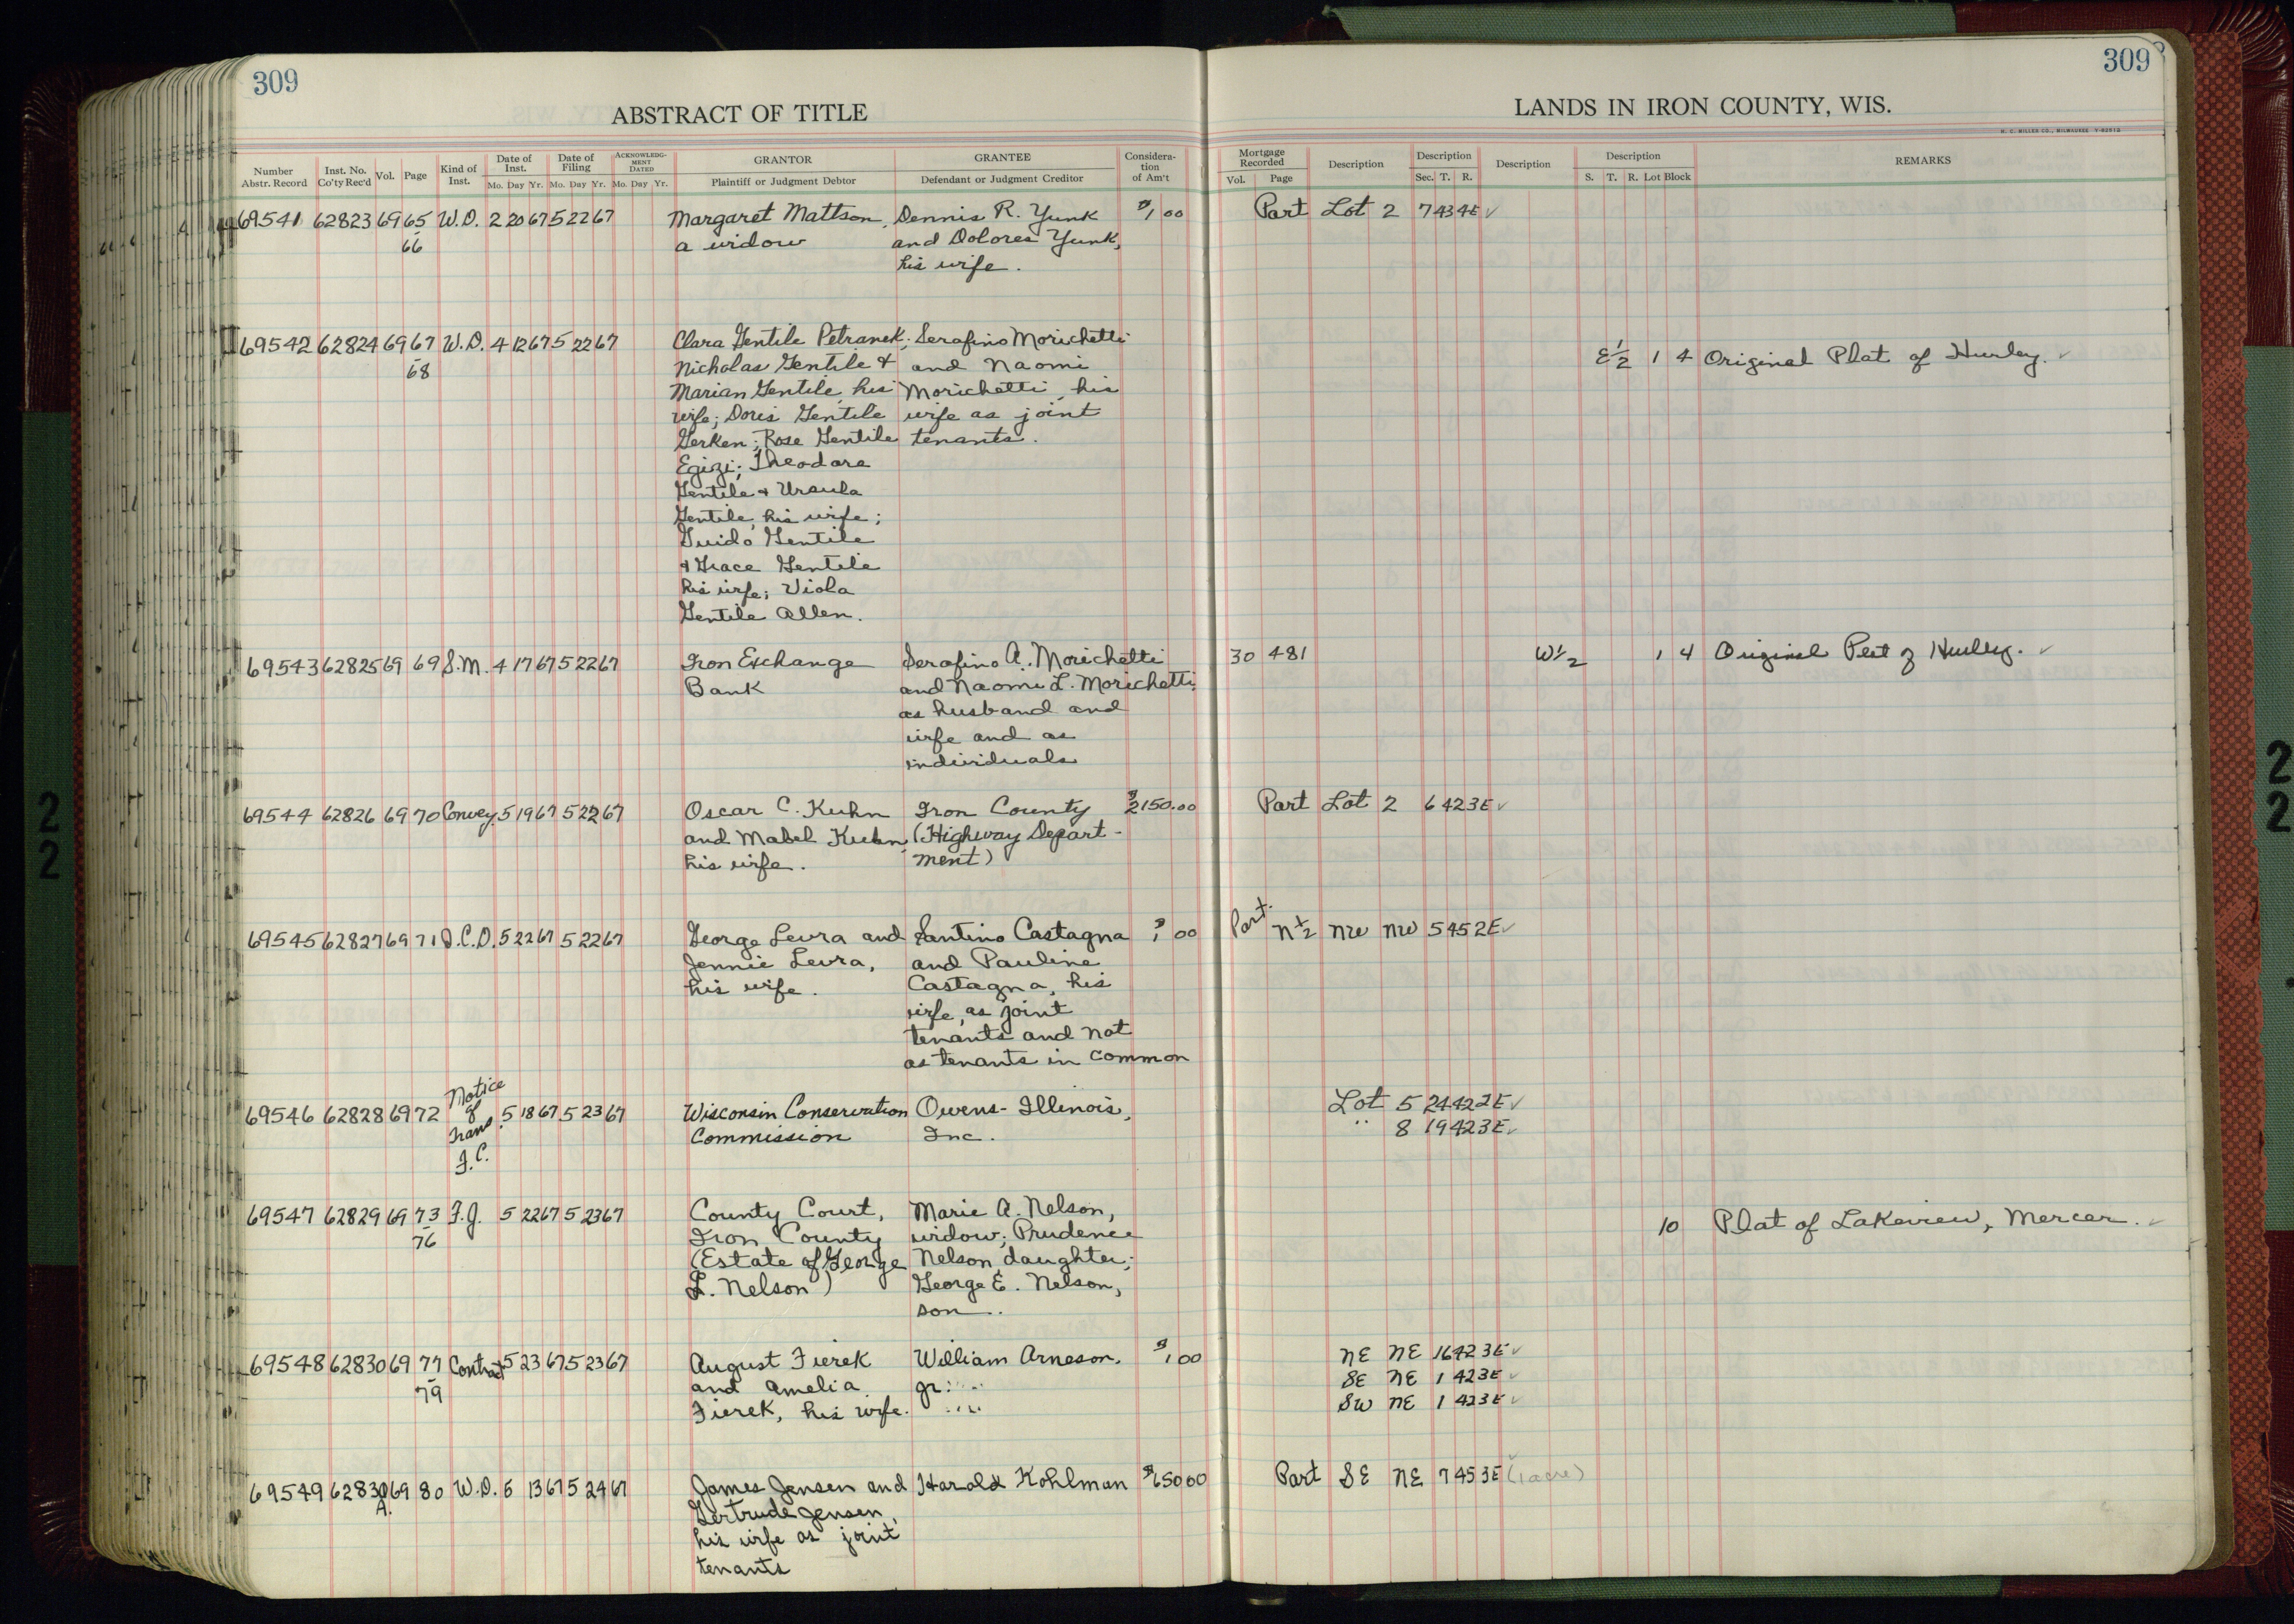 309
309
ABSTRACT OF TITLE
LANDS IN IRON COUNTY, WIS.
H. C. MILLER CO., MILWAUKEE Y-82512
Number Abstr. Record
Inst. No. Co'ty Rec'd
Vol.
Page
Kind of Inst.
Date of Inst.
Mo. Day Yr.
Date of Filing
Mo. Day Yr.
ACKNOWLEDGMENT DATED
Mo. Day Yr.
GRANTOR
Plaintiff or Judgment Debtor
GRANTEE
Defendant or Judgment Creditor
Considera-
tion
of Am't
Mortgage Recorded
Vol. Page
Description
Description
Sec. T. R.
Description
Description
S. T. R. Lot Block
REMARKS
69541 62823 69 65 W.D. 2 20 67 5 22 67 Margaret Mattson, Dennis R. Yunk $1 00 Part Lot 2 7 43 4E ✓
66 a widow and Dolores Yunk,
his wife.
69542 62824 69 67 W.D. 4 12 67 5 22 67 Clara Gentile Petranek; Serafino Morichetti E 1/2 1 4 Original Plat of Hurley. ✓
68 Nicholas Gentile & and Naomi
Marian Gentile, his Morichetti, his
wife; Doris Gentile wife as joint
Gerken; Rose Gentile tenants.
Egizi; Theodore
Gentile & Ursula
Gentile, his wife;
Guido Gentile
& Grace Gentile
his wife; Viola
Gentile Allen.
69543 62825 69 69 S.M. 4 17 67 5 22 67 Iron Exchange Serafino A. Morichetti 30 481 W 1/2 1 4 Original Plat of Hurley. ✓
Bank and Naomi L. Morichetti,
as husband and
wife and as
individuals
69544 62826 69 70 Convey. 5 19 67 5 22 67 Oscar C. Kuhn Iron County $2150.00 Part Lot 2 6 42 3E ✓
and Mabel Kuhn, (Highway Depart-
his wife. ment)
69545 62827 69 71 Q.C.D. 5 22 67 5 22 67 George Levra and Santino Castagna $1 00 Part. N 1/2 NW NW 5 45 2E ✓
Jennie Levra, and Pauline
his wife. Castagna, his
wife, as joint
tenants and not
as tenants in common
69546 62828 69 72 Notice of Trans. F.C. 5 18 67 5 23 67 Wisconsin Conservation Owens-Illinois, Lot 5 24 42 2E ✓
Commission Inc. " 8 19 42 3E ✓
69547 62829 69 73 F.J. 5 22 67 5 23 67 County Court, Marie A. Nelson, 10 Plat of Lakeview, Mercer. ✓
76 Iron County widow; Prudence
(Estate of George Nelson daughter;
L. Nelson) George E. Nelson,
son.
69548 62830 69 77 Contract 5 23 67 5 23 67 August Fierek William Arneson, $1 00 NE NE 16 42 3E ✓
79 and Amelia SE NE 1 42 3E ✓
Fierek, his wife. SW NE 1 42 3E ✓
69549 62830 69 80 W.D. 5 13 67 5 24 67 James Jensen and Harold Kohlman $650 00 Part SE NE 7 45 3E (1 acre)
A. Gertrude Jensen,
his wife as joint
tenants
2
2
2
2